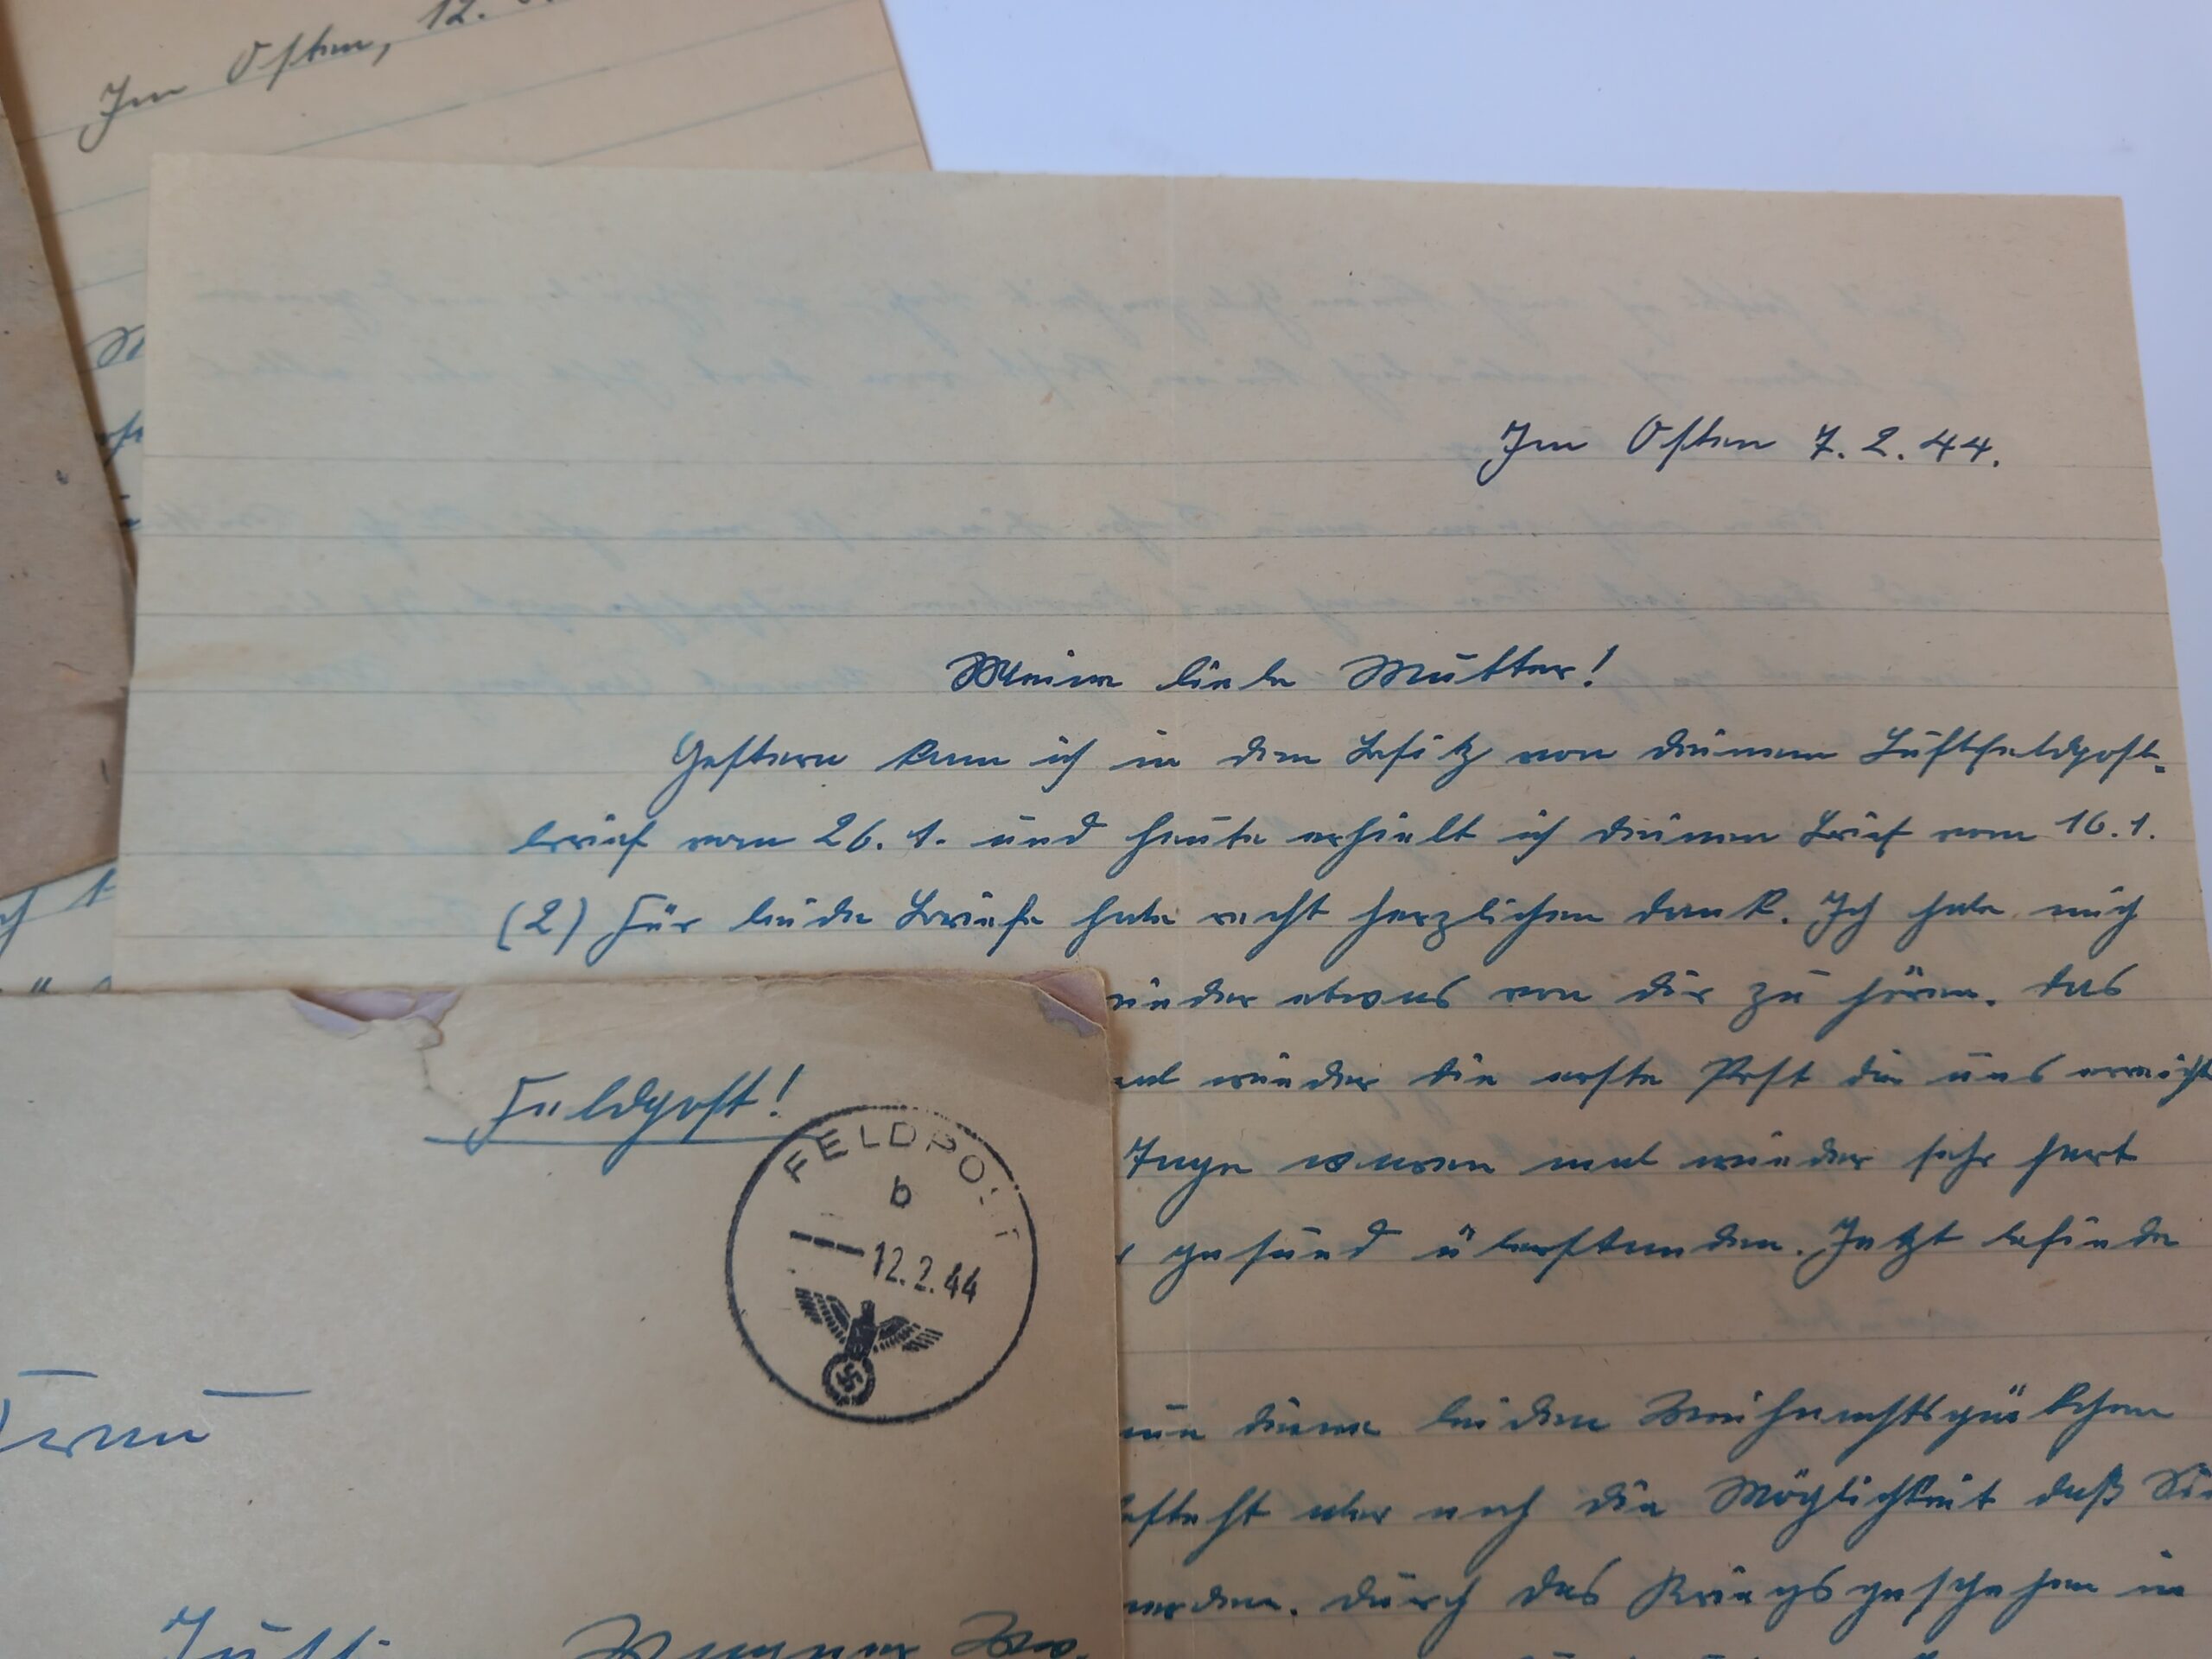 Im Osten, 12.
Im Osten 7.2.44.
Meine liebe Mutter!
Gestern kam ich in den Besitz von deinem Luftfeldpost-
brief vom 26.1. und heute erhielt ich deinen Brief vom 16.1.
(2) Für beide Briefe habe recht herzlichen dank. Ich habe mich
wieder etwas von dir zu hören. das
mal wieder die erste Post die uns erreicht
Tage waren mal wieder sehr hart
gesund überstanden. Jetzt befinde
deine beiden Weihnachtspäckchen
besteht aber noch die Möglichkeit daß Sie
werden. durch das Kriegsgeschehen in
Feldpost!
FELDPOST
b
12.2.44
Frau
Wagner Ww.